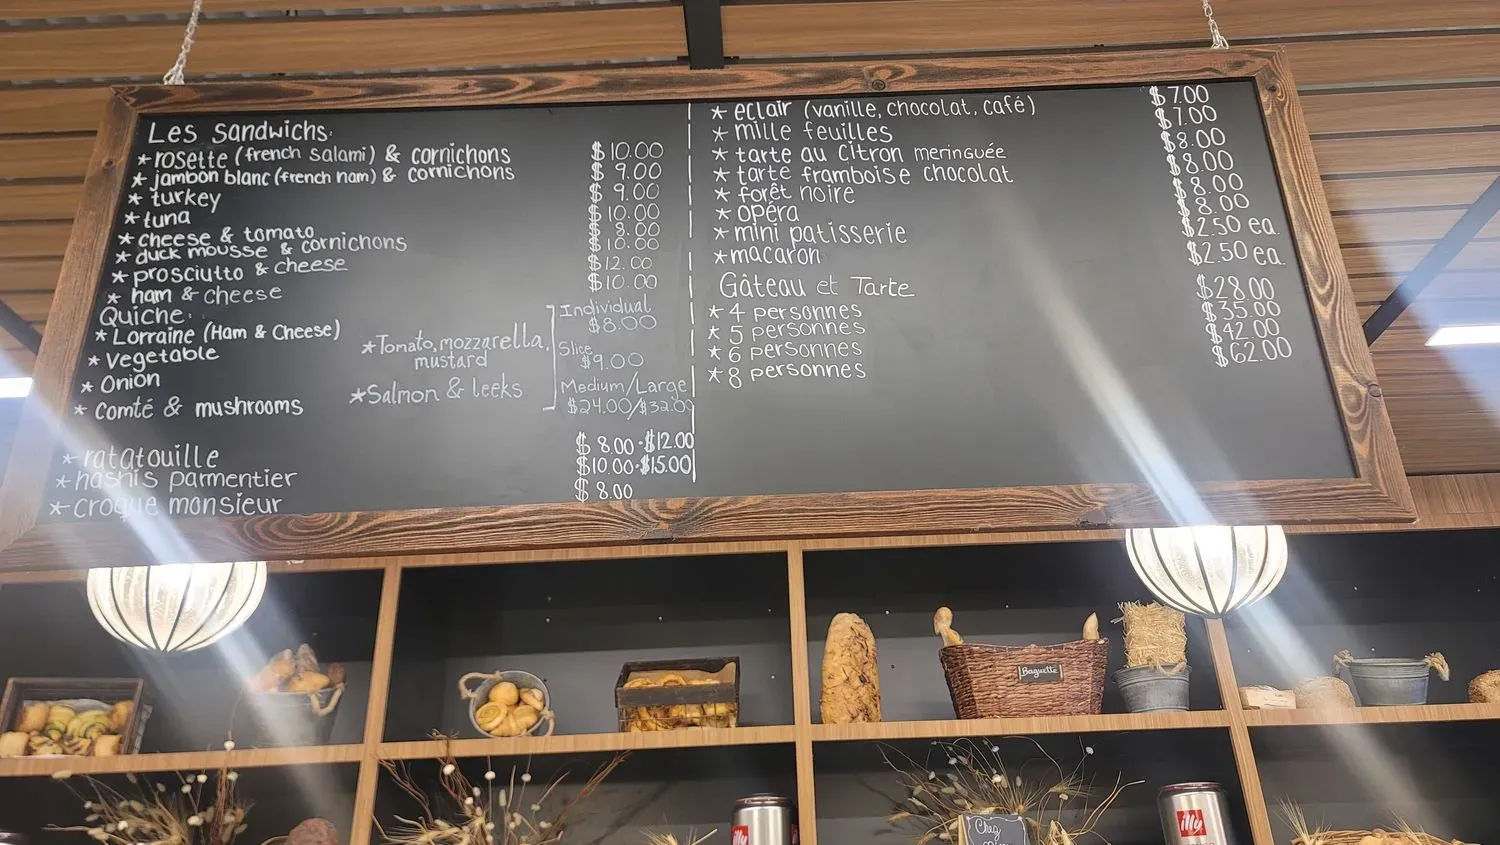 Les Sandwichs:
* rosette (french salami) & cornichons $10.00
* jambon blanc (french ham) & cornichons $9.00
* turkey $9.00
* tuna $10.00
* cheese & tomato $8.00
* duck mousse & cornichons $10.00
* prosciutto & cheese $12.00
* ham & cheese $10.00
Quiche:
* Lorraine (Ham & Cheese)
* Vegetable
* Onion
* Comté & mushrooms
* Tomato, mozzarella,
mustard
* Salmon & leeks
Individual
$8.00
Slice
$9.00
Medium/Large
$24.00/$32.00
* ratatouille $8.00-$12.00
* hashis parmentier $10.00-$15.00
* croque monsieur $8.00
* eclair (vanille, chocolat, café) $7.00
* mille feuilles $7.00
* tarte au citron meringuée $8.00
* tarte framboise chocolat $8.00
* forêt noire $8.00
* opéra $8.00
* mini patisserie $2.50 ea.
* macaron $2.50 ea.
Gâteau et Tarte
* 4 personnes $28.00
* 5 personnes $35.00
* 6 personnes $42.00
* 8 personnes $62.00
Baguette
illy
Chez
illy